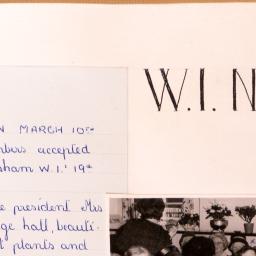 W.I. N
N MARCH 10TH
mbers accepted
sham W.I.' 19th
e president Mrs
ge hall, beauti-
t plants and